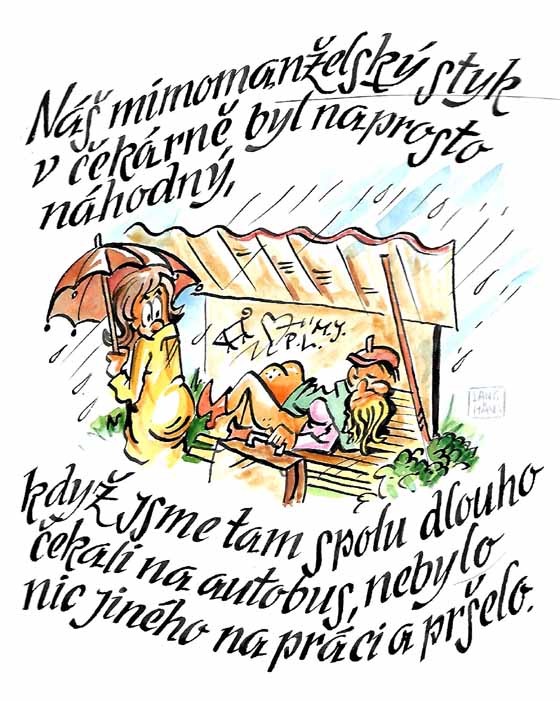 Náš mimomanželský styk
v čěkárně byl naprosto
náhodný,
M.Y.
P.L.
LANG
MAN
když jsme tam spolu dlouho
čěkali na autobus, nebylo
nic jiného na práci a pršelo.